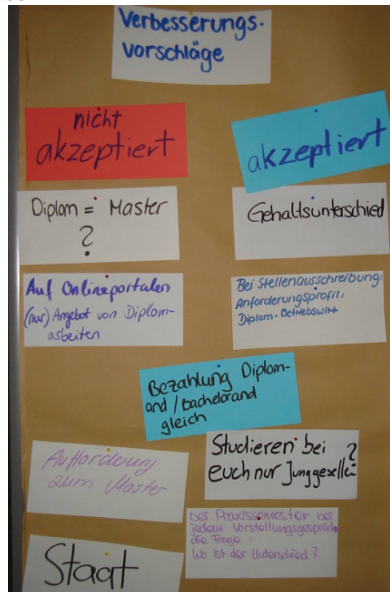 Verbesserungs-
vorschläge
nicht
akzeptiert
akzeptiert
Diplom = Master
?
Gehaltsunterschied
Auf Onlineportalen
(nur) Angebot von Diplom-
arbeiten
Bei Stellenausschreibung,
Anforderungsprofil,
Diplom-Betriebswirt
Bezahlung Diplom-
and/Bachelorand
gleich
Aufforderung
zum Master
Studieren bei
euch nur Junggesellen?
Bei Praxissemester bei
jedem Vorstellungsgespräch
die Frage:
Wo ist der Unterschied?
Staat